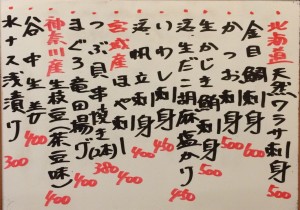 北海道天然ワラサ刺身 500
金目鯛刺身 600
かつお刺身 500
生かじき鮪刺身 500
生だこ胡麻塩かけ 450
いわし刺身 450
活帆立刺身 400
宮城産ほや刺 400
つぶ貝串焼き(2本) 380
まぐろ竜田揚げ 400
神奈川産生枝豆(茶豆味) 400
谷中生姜 400
水ナス浅漬け 300